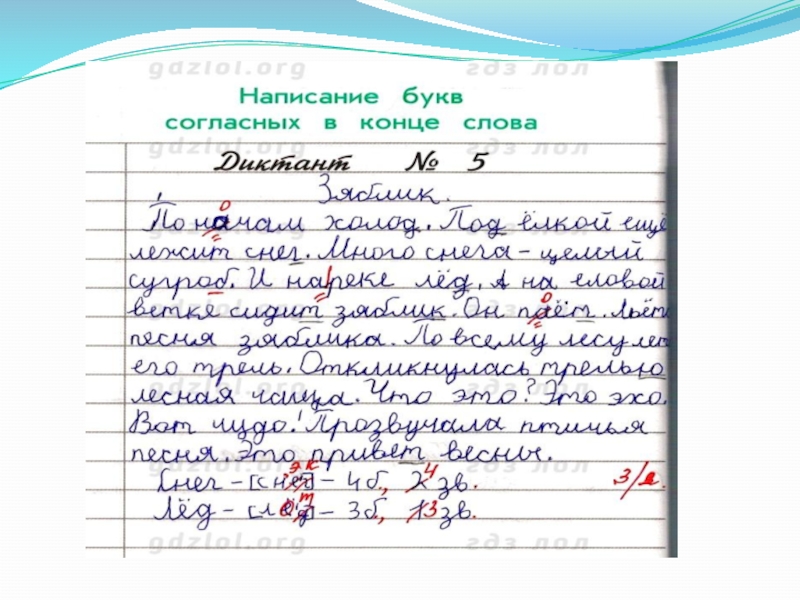 gdzlol.org гдз лол
Написание букв
согласных в конце слова
gdzlol.org гдз лол
Диктант № 5
Зяблик.
о
По начам холод. Под ёлкой ещё
лежит снег. Много снега - целый
сугроб. И нареке лёд. А на еловой
о
ветке сидит зяблик. Он паёт. Льёт
песня зяблика. По всему лесу лет
его трель. Откликнулась трелью
gdzlol.org гдз лол
лесная чаща. Что это? Это эхо.
Вот чудо! Прозвучала птичья
песня. Это привет весны.
э к 4
Снег - [снег] - 4 б., 2 зв. 3/
т
Лёд - [лёд] - 3 б., 1 3 зв.
gdzlol.org гдз лол